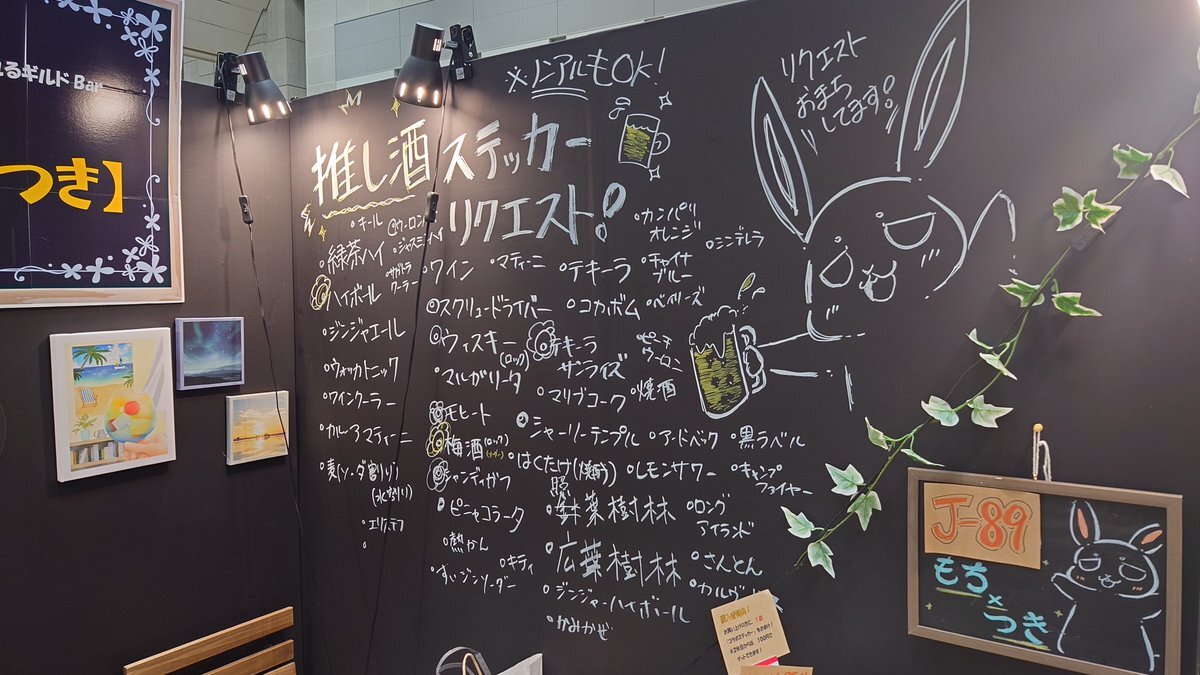 るギルド Bar
つき】
※ノンアルもOK!
リクエスト
おまち
してます!
推し酒ステッカー
リクエスト!
・キール
・緑茶ハイ
・ジャスミンハイ
・ハイボール
・ジンジャエール
・ウォッカトニック
・ワインクーラー
・カルーアマティーニ
・麦(ソーダ割り)
(水割り)
・ワイン
・マティーニ
・テキーラ
・カンパリ
オレンジ
・シンデレラ
・チャイナ
ブルー
・スクリュードライバー
・コカボム
・ベイリーズ
・ウィスキー
(ロック)
・テキーラ
サンライズ
・ピーチ
ウーロン
・マルガリータ
・マリブコーク
・焼酎
・モヒート
・シャーリーテンプル
・アードベック
・黒ラベル
・梅酒(ロック)
・はくたけ
・レモンサワー
・キャンプ
ファイヤー
・シャンディガフ
・ピニャコラータ
・針葉樹林
・ロング
アイランド
・熱かん
・キティ
・広葉樹林
・さんとん
・ジンジャーハイボール
・かみかぜ
J-89
もち×
つき